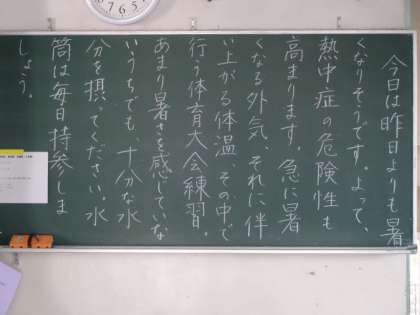 今日は昨日よりも暑
くなりそうです。よって、
熱中症の危険性も
高まります。急に暑
くなる外気、それに伴
い上がる体温、その中で
行う体育大会練習。
あまり暑さを感じていな
いうちでも、十分な水
分を摂ってください。水
筒は毎日持参しま
しょう。